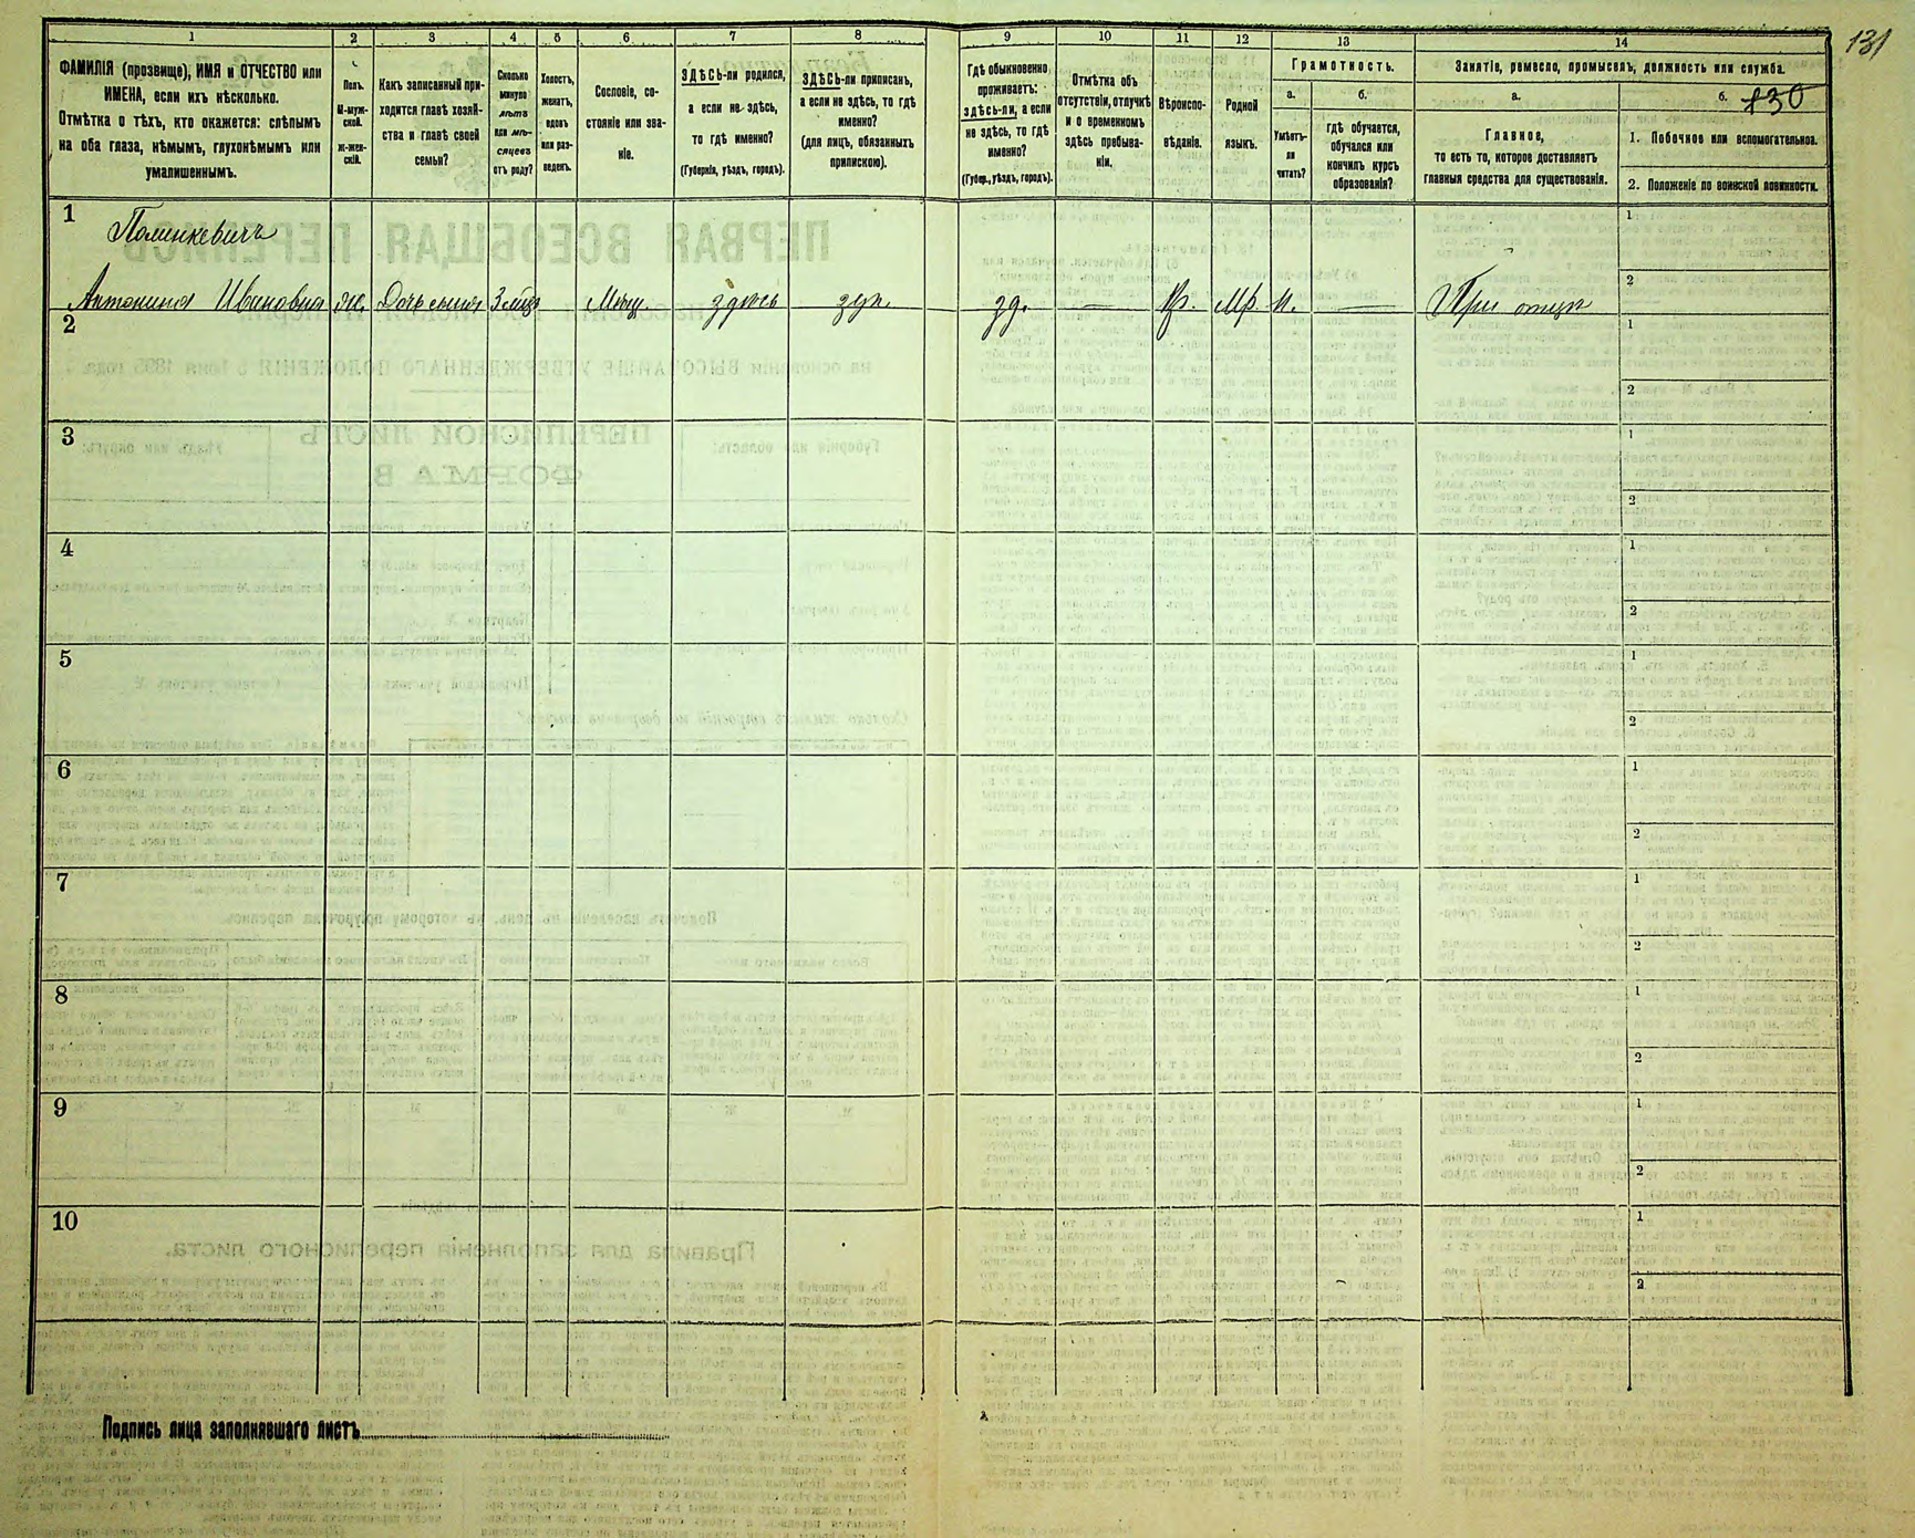 131
1 2 3 4 5 6 7 8 9 10 11 12 13 14
ФАМИЛІЯ (прозвище), ИМЯ и ОТЧЕСТВО или
ИМЕНА, если ихъ нѣсколько.
Отмѣтка о тѣхъ, кто окажется: слѣпымъ
на оба глаза, нѣмымъ, глухонѣмымъ или
умалишеннымъ.
Полъ.
М-муж-
ской.
ж-жен-
скій.
Какъ записанный при-
ходится главѣ хозяй-
ства и главѣ своей
семьи?
Сколько
минуло
лѣтъ
или мѣ-
сяцевъ
отъ роду?
Холостъ,
женатъ,
вдовъ
или раз-
веденъ.
Сословіе, со-
стояніе или зва-
ніе.
ЗДѢСЬ-ли родился,
а если не здѣсь,
то гдѣ именно?
(Губернія, уѣздъ, городъ).
ЗДѢСЬ-ли приписанъ,
а если не здѣсь, то гдѣ
именно?
(для лицъ, обязанныхъ
припискою).
Гдѣ обыкновенно
проживаетъ:
здѣсь-ли, а если
не здѣсь, то гдѣ
именно?
(Губер., уѣздъ, городъ).
Отмѣтка объ
отсутствіи, отлучкѣ
и о временномъ
здѣсь пребыва-
ніи.
Вѣроиспо-
вѣданіе.
Родной
языкъ.
Грамотность.
а.
Умѣетъ-
ли
читать?
б.
гдѣ обучается,
обучался или
кончилъ курсъ
образованія?
Занятіе, ремесло, промыселъ, должность или служба.
а.
Главное,
то есть то, которое доставляетъ
главныя средства для существованія.
б.
130
1. Побочное или вспомогательное.
2. Положеніе по воинской повинности.
1
Полинкевичъ
1
Антонина Ивановна ж. Дочь сына 3 мѣс Мѣщ. здѣсь зд. — Мр. н. — При отцѣ
2
2
1
2
3
1
2
4
1
2
5
1
2
6
1
2
7
1
2
8
1
2
9
1
2
10
1
2
Подпись лица заполнявшаго листъ